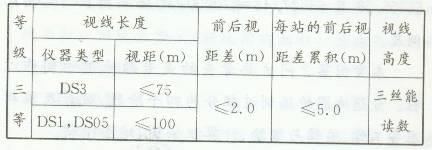 等级 视线长度 前后视距差(m) 每站的前后视距差累积(m) 视线高度
仪器类型 视距(m)
三等 DS3 ≤75 ≤2.0 ≤5.0 三丝能读数
DS1,DS05 ≤100